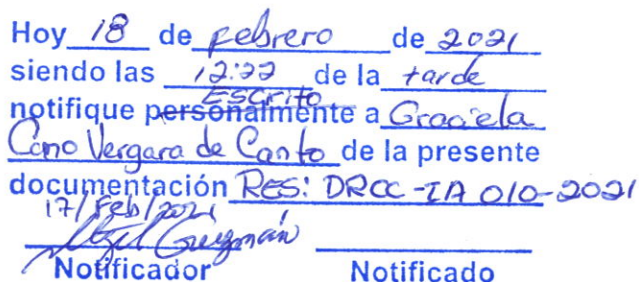 Hoy 18 de febrero de 2021
siendo las 12:22 de la tarde
Escrito
notifique personalmente a Graciela
Cano Vergara de Canto de la presente
documentación RES: DRCC-IA 010-2021
17/Feb/2021
Guzmán
Notificador Notificado